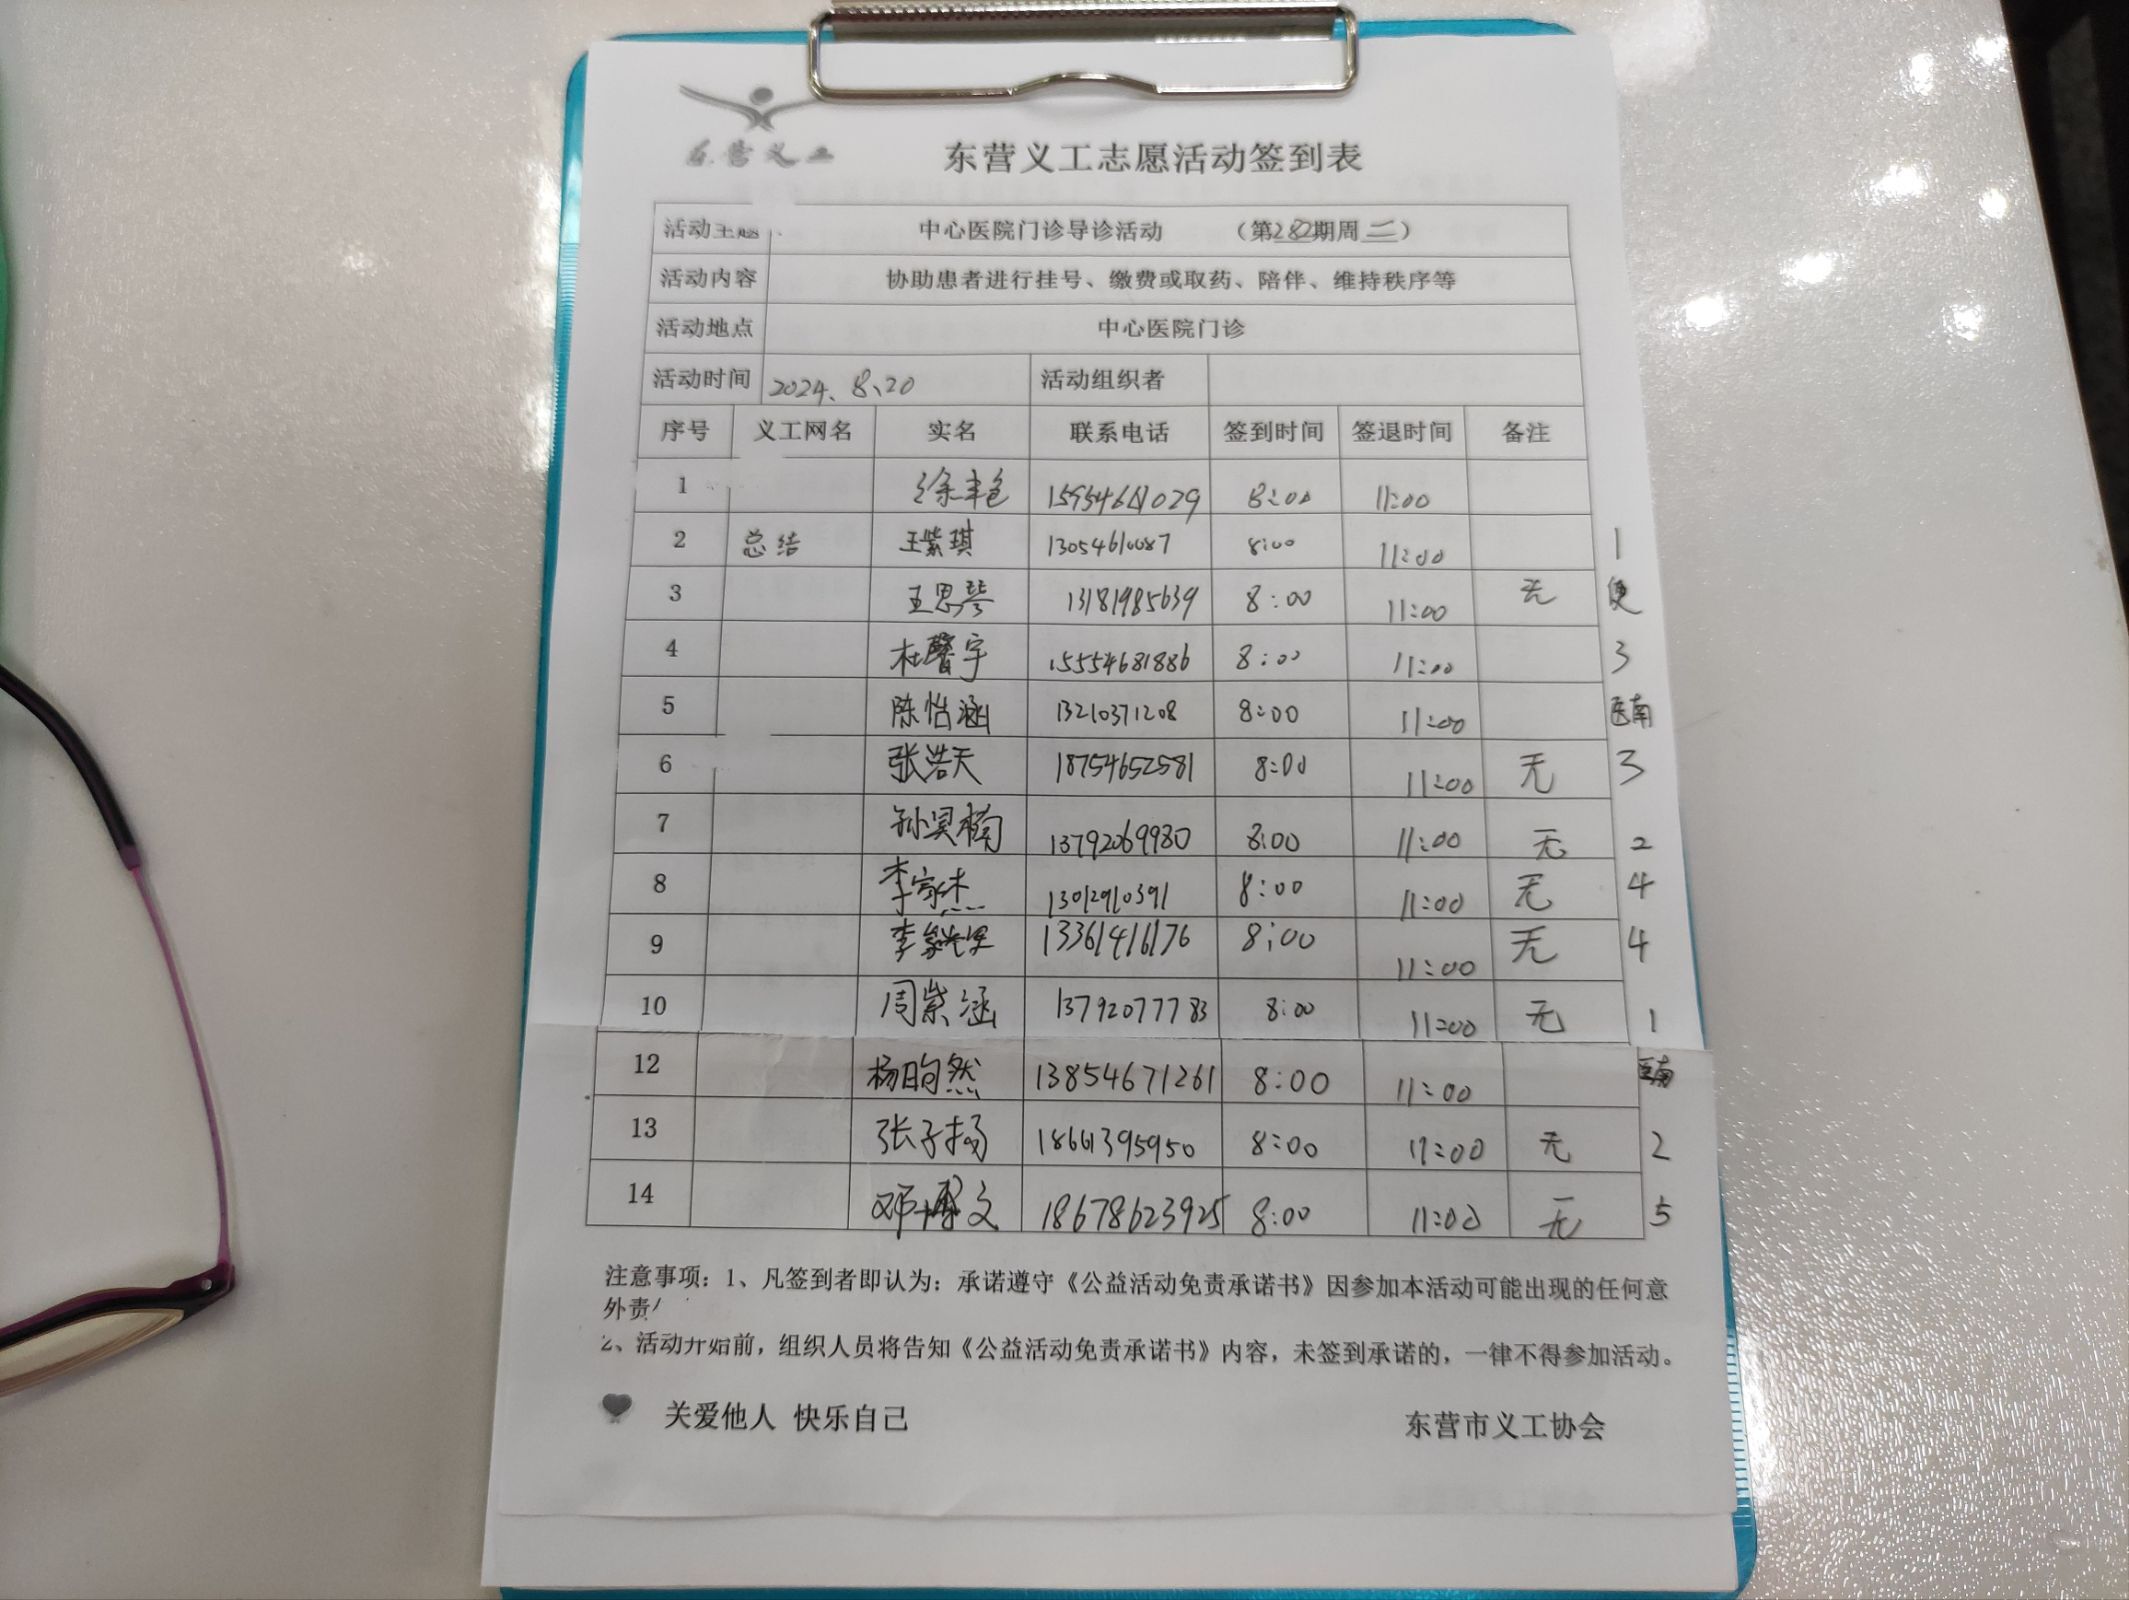 东营义工
东营义工志愿活动签到表
活动主题 中心医院门诊导诊活动 （第282期周二）
活动内容 协助患者进行挂号、缴费或取药、陪伴、维持秩序等
活动地点 中心医院门诊
活动时间 2024、8、20 活动组织者
序号 义工网名 实名 联系电话 签到时间 签退时间 备注
1 徐丰色 8:00 11:00
2 总结 王紫琪 13054610087 8:00 11:00 1
3 王思琴 13181985639 8:00 11:00 无 便
4 杜馨宇 15554681886 8:00 11:00 3
5 陈怡涵 13210371208 8:00 11:00 医南
6 张浩天 18754652581 8:00 11:00 无 3
7 孙昊楠 13792069980 8:00 11:00 无 2
8 李家杰 13012910391 8:00 11:00 无 4
9 李 13361416176 8:00 11:00 无 4
10 周紫涵 13792077783 8:00 11:00 无 1
12 杨昫然 13854671261 8:00 11:00 医南
13 张子扬 18661395950 8:00 11:00 无 2
14 邓博文 18678623925 8:00 11:00 无 5
注意事项：1、凡签到者即认为：承诺遵守《公益活动免责承诺书》因参加本活动可能出现的任何意
外责
2、活动开始前，组织人员将告知《公益活动免责承诺书》内容，未签到承诺的，一律不得参加活动。
关爱他人 快乐自己 东营市义工协会